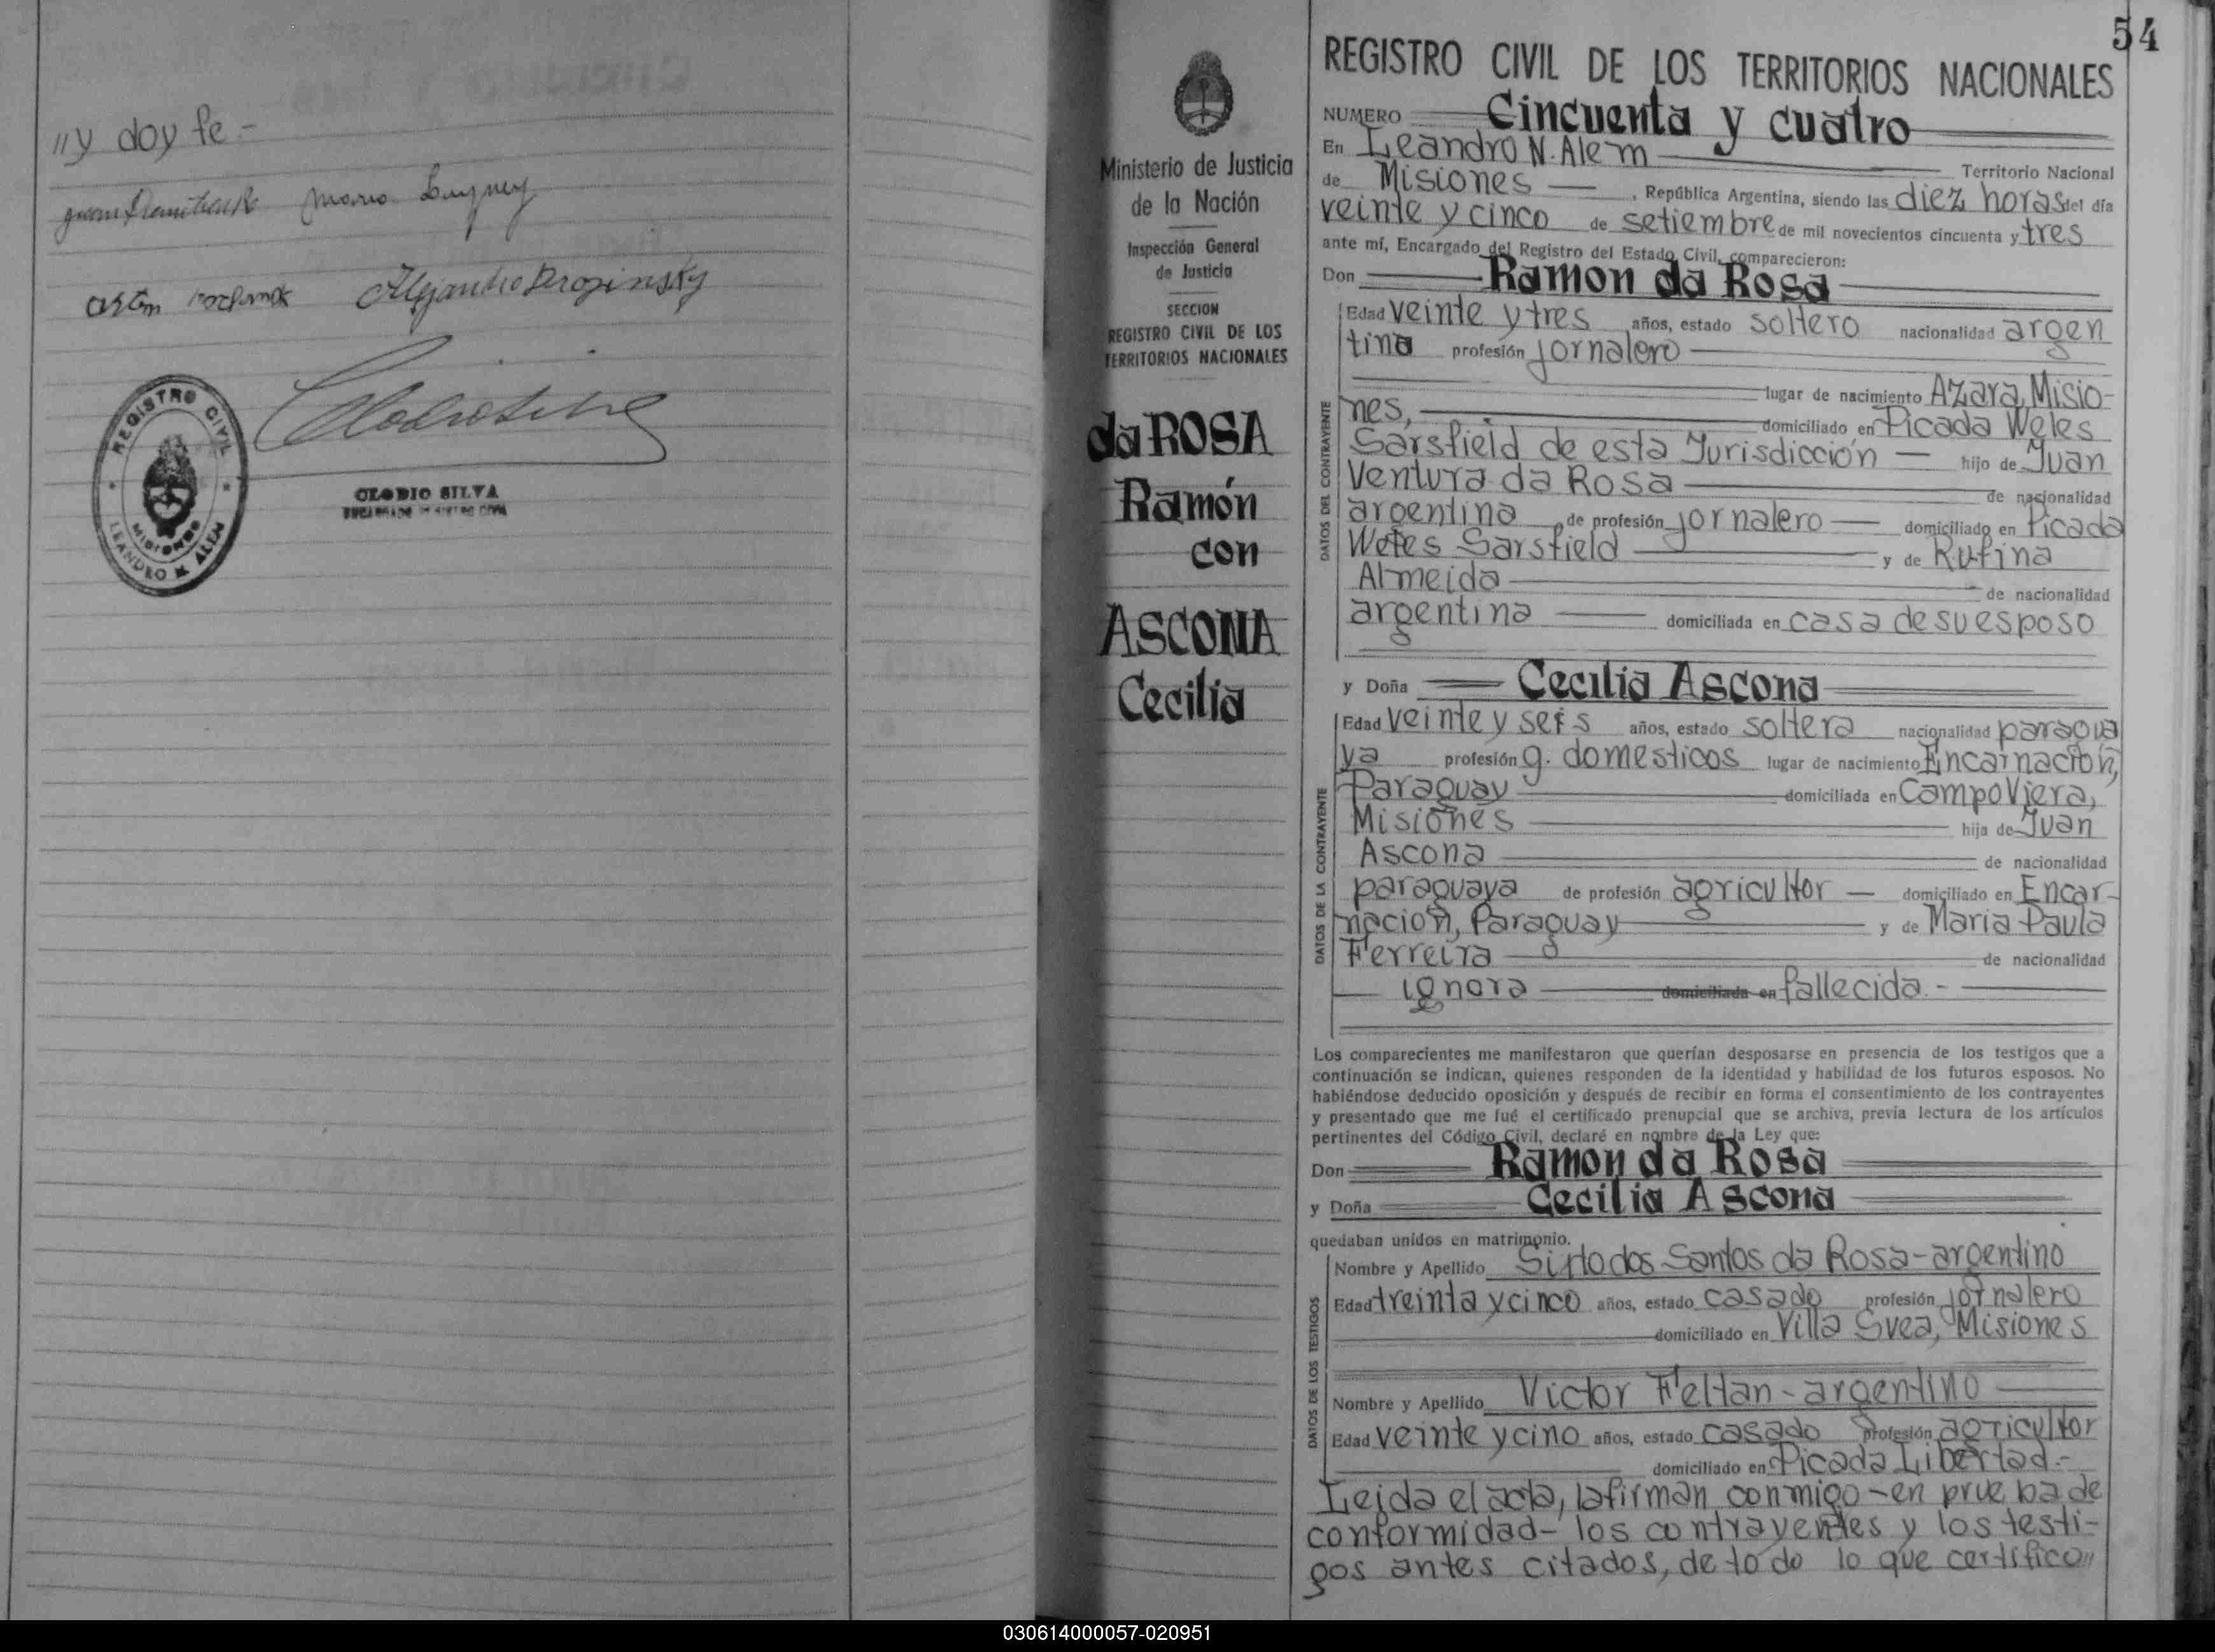 "y doy fe-
Alejandro Dropinsky
REGISTRO CIVIL
MISIONES
LEANDRO N. ALEM
CLODIO SILVA
ENCARGADO REGISTRO CIVIL
Ministerio de Justicia
de la Nación
Inspección General
de Justicia
SECCION
REGISTRO CIVIL DE LOS
TERRITORIOS NACIONALES
da ROSA
Ramón
con
ASCONA
Cecilia
54
REGISTRO CIVIL DE LOS TERRITORIOS NACIONALES
NUMERO Cincuenta y cuatro
En Leandro N. Alem Territorio Nacional
de Misiones, República Argentina, siendo las diez horas del día
veinte y cinco de setiembre de mil novecientos cincuenta y tres
ante mí, Encargado del Registro del Estado Civil, comparecieron:
Don Ramon da Rosa
DATOS DEL CONTRAYENTE
Edad veinte y tres años, estado soltero nacionalidad argen
tina profesión jornalero
lugar de nacimiento Azara, Misio-
nes, domiciliado en Picada Weles
Sarsfield de esta Jurisdicción hijo de Juan
Ventura da Rosa de nacionalidad
argentina de profesión jornalero domiciliado en Picada
Weles Sarsfield y de Rufina
Almeida de nacionalidad
argentina domiciliada en casa de su esposo
y Doña Cecilia Ascona
DATOS DE LA CONTRAYENTE
Edad veinte y seis años, estado soltera nacionalidad paragua
ya profesión g. domesticos lugar de nacimiento Encarnación,
Paraguay domiciliada en Campo Viera,
Misiones hija de Juan
Ascona de nacionalidad
paraguaya de profesión agricultor domiciliado en Encar-
nación, Paraguay y de Maria Paula
Ferreira de nacionalidad
ignora domiciliada en fallecida.-
Los comparecientes me manifestaron que querían desposarse en presencia de los testigos que a
continuación se indican, quienes responden de la identidad y habilidad de los futuros esposos. No
habiéndose deducido oposición y después de recibir en forma el consentimiento de los contrayentes
y presentado que me fué el certificado prenupcial que se archiva, previa lectura de los artículos
pertinentes del Código Civil, declaré en nombre de la Ley que:
Don Ramon da Rosa
y Doña Cecilia Ascona
quedaban unidos en matrimonio.
DATOS DE LOS TESTIGOS
Nombre y Apellido Sirto dos Santos da Rosa-argentino
Edad treinta y cinco años, estado casado profesión jornalero
domiciliado en Villa Svea, Misiones
Nombre y Apellido Victor Feltan-argentino
Edad veinte y cino años, estado casado profesión agricultor
domiciliado en Picada Libertad.-
Leida el acta, la firman conmigo-en prueba de
conformidad-los contrayentes y los testi-
gos antes citados, de todo lo que certifico"
030614000057-020951